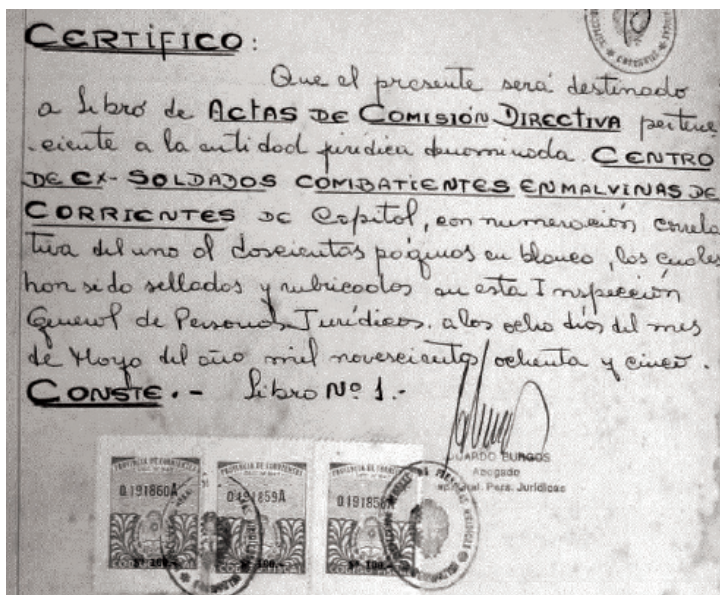 CERTIFICO:
Que el presente será destinado
a Libro de ACTAS DE COMISIÓN DIRECTIVA pertene
ciente a la entidad jurídica denominada CENTRO
DE EX-SOLDADOS COMBATIENTES EN MALVINAS DE
CORRIENTES DE Capital, con numeración correla
tiva del uno al doscientas páginas en blanco, las cuales
han sido sellados y rubricados en esta Inspección
General de Personas Jurídicas. a los ocho días del mes
de Mayo del año mil novescientos ochenta y cinco.
CONSTE.- Libro Nº 1.-
EDUARDO BURGOS
Abogado
Gral. Pers. Jurídicas
PROVINCIA DE CORRIENTES PROVINCIA DE CORRIENTES PROVINCIA DE CORRIENTES
0191860A 0191859A 0191858A
$ 100.- $ 100.- $ 100.-